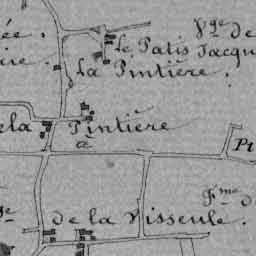 ée.
Vge de
Le Patis Jacqu
ire.
La Pintière.
ela Pintière
a
Pt
Fme d
ge de la Visseule.